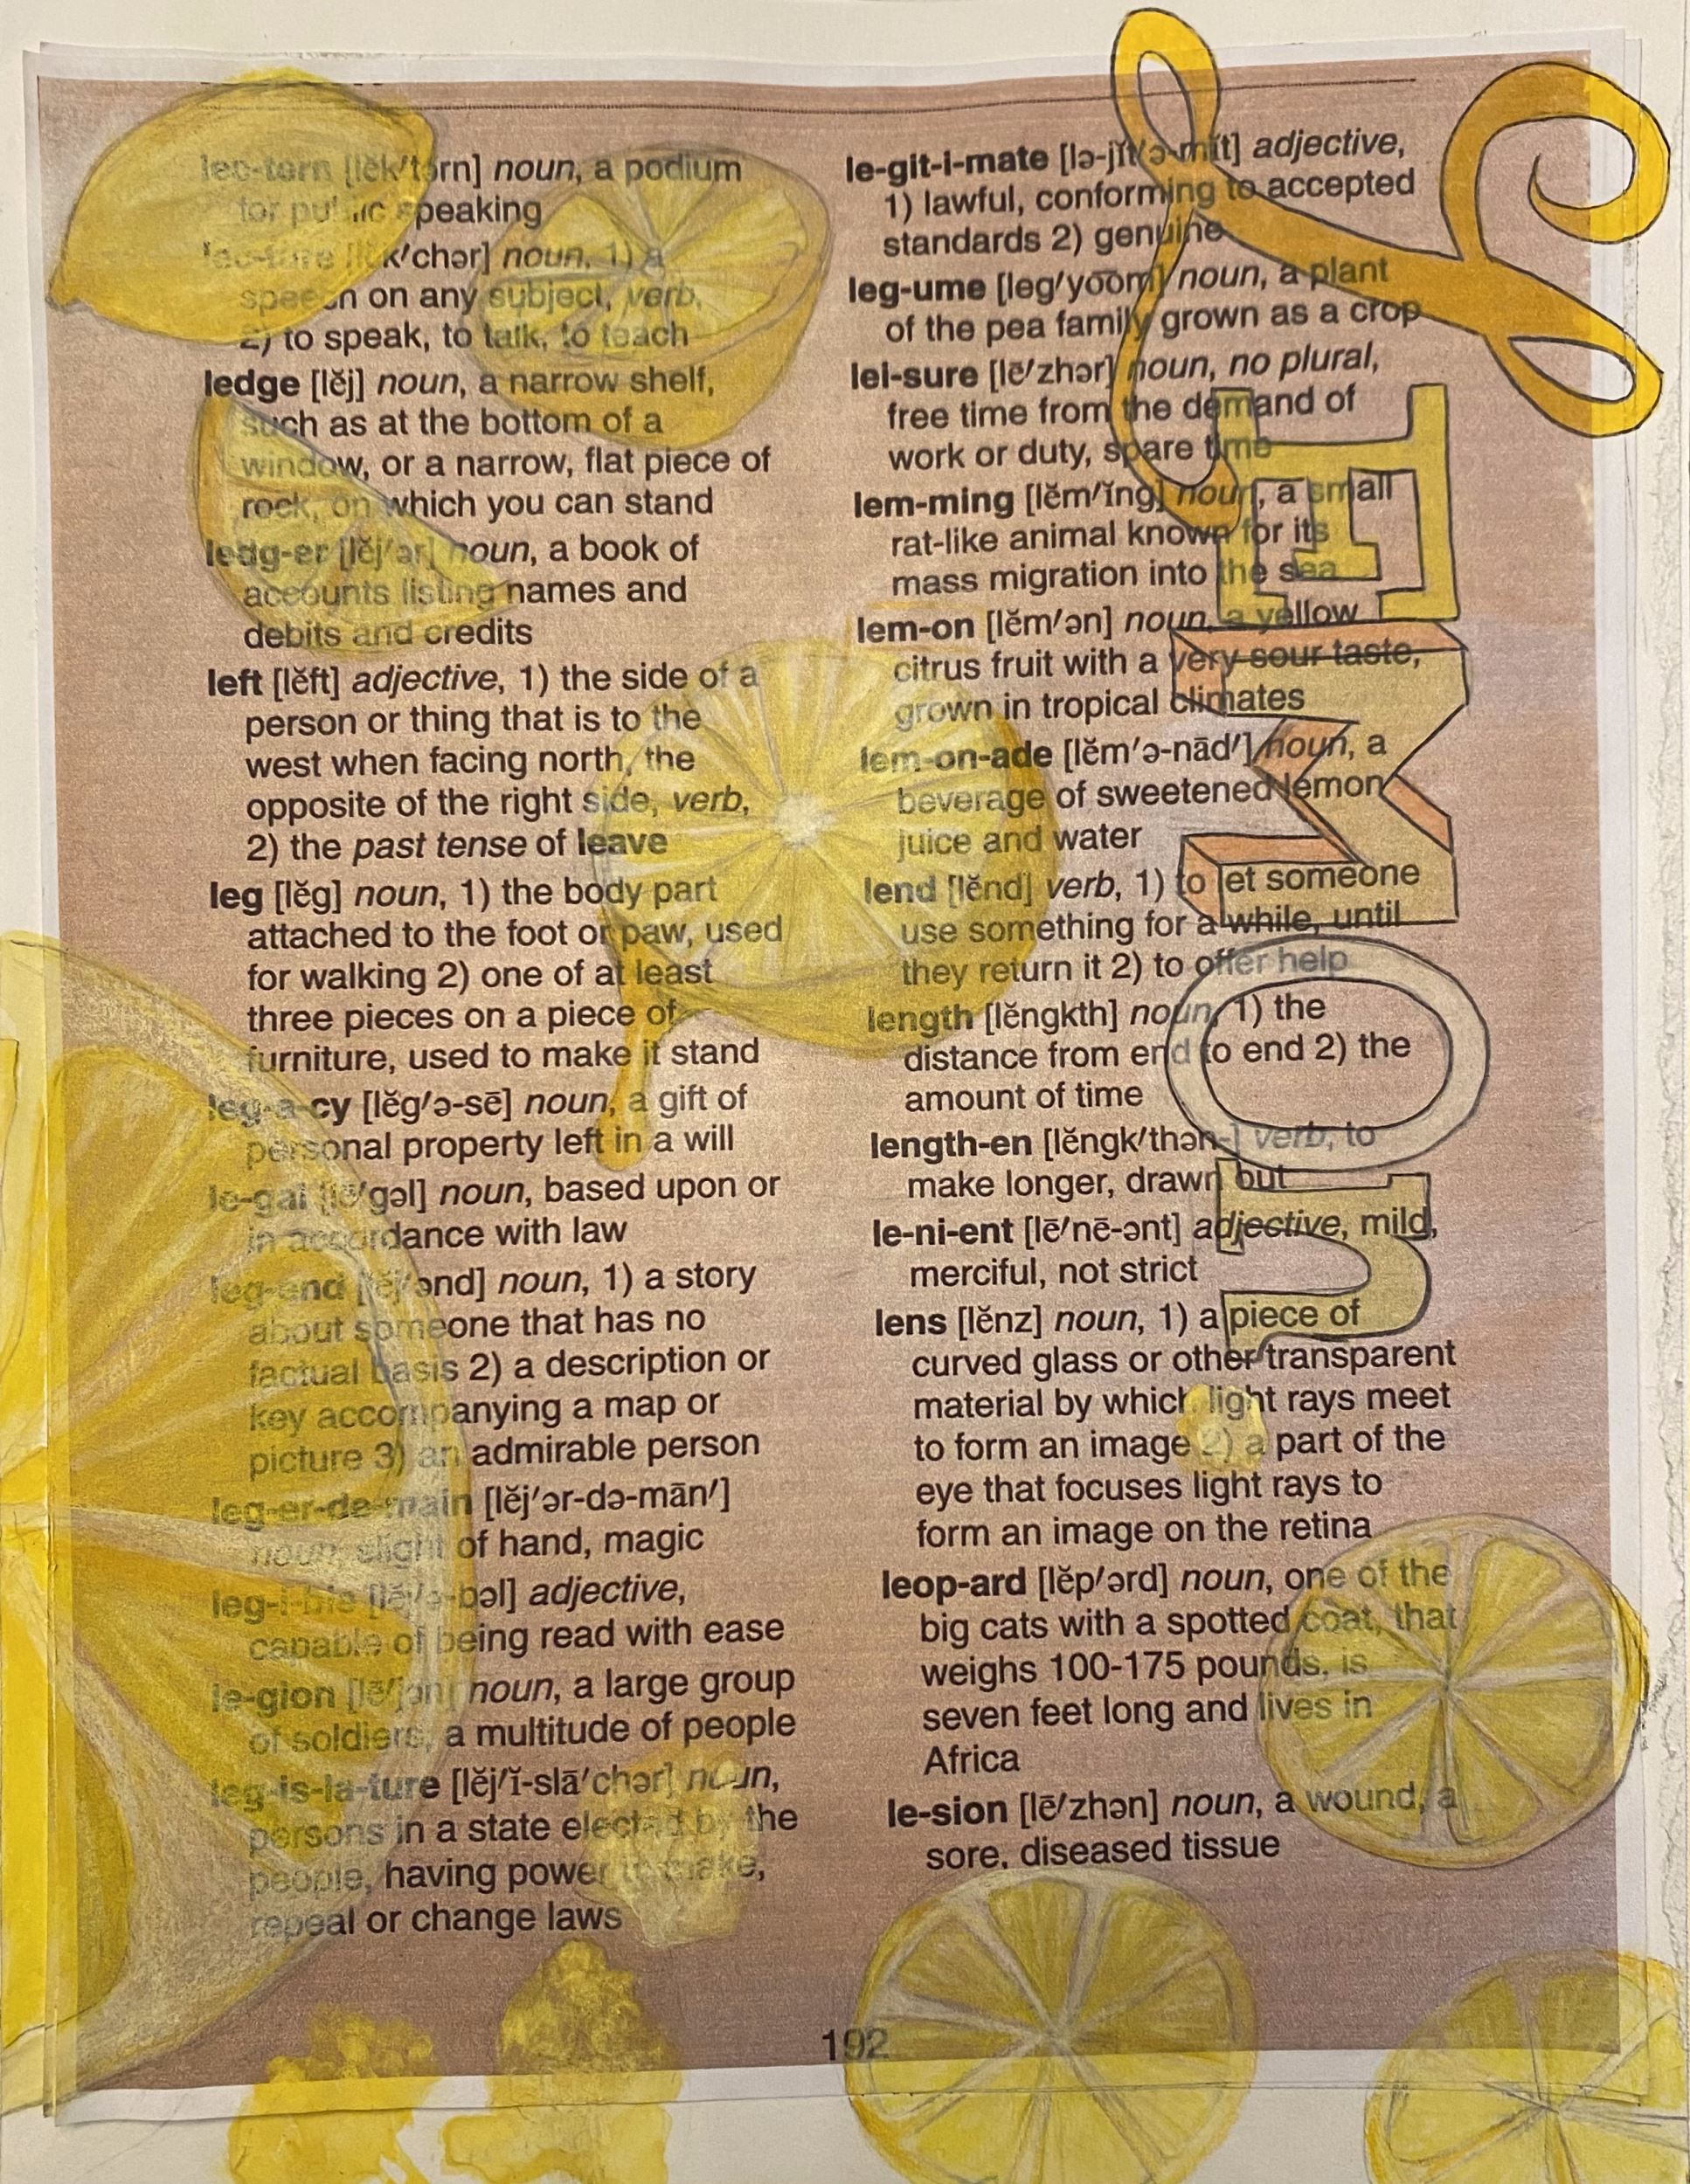 lec-tern [lĕk′tərn] noun, a podium
for public speaking
lec-ture [lĕk′chər] noun, 1) a
speech on any subject, verb,
2) to speak, to talk, to teach
ledge [lĕj] noun, a narrow shelf,
such as at the bottom of a
window, or a narrow, flat piece of
rock, on which you can stand
ledg-er [lĕj′ər] noun, a book of
accounts listing names and
debits and credits
left [lĕft] adjective, 1) the side of a
person or thing that is to the
west when facing north, the
opposite of the right side, verb,
2) the past tense of leave
leg [lĕg] noun, 1) the body part
attached to the foot or paw, used
for walking 2) one of at least
three pieces on a piece of
furniture, used to make it stand
leg-a-cy [lĕg′ə-sē] noun, a gift of
personal property left in a will
le-gal [lē′gəl] noun, based upon or
in accordance with law
leg-end [lĕj′ənd] noun, 1) a story
about someone that has no
factual basis 2) a description or
key accompanying a map or
picture 3) an admirable person
leg-er-de-main [lĕj′ər-də-mān′]
noun, slight of hand, magic
leg-i-ble [lĕj′ə-bəl] adjective,
capable of being read with ease
le-gion [lē′jən] noun, a large group
of soldiers, a multitude of people
leg-is-la-ture [lĕj′ĭ-slā′chər] noun,
persons in a state elected by the
people, having power to make,
repeal or change laws
le-git-i-mate [lə-jĭt′ə-mĭt] adjective,
1) lawful, conforming to accepted
standards 2) genuine
leg-ume [leg′yo͞om] noun, a plant
of the pea family grown as a crop
lei-sure [lē′zhər] noun, no plural,
free time from the demand of
work or duty, spare time
lem-ming [lĕm′ĭng] noun, a small
rat-like animal known for its
mass migration into the sea
lem-on [lĕm′ən] noun, a yellow
citrus fruit with a very sour taste,
grown in tropical climates
lem-on-ade [lĕm′ə-nād′] noun, a
beverage of sweetened lemon
juice and water
lend [lĕnd] verb, 1) to let someone
use something for a while, until
they return it 2) to offer help
length [lĕngkth] noun, 1) the
distance from end to end 2) the
amount of time
length-en [lĕngk′thən-] verb, to
make longer, drawn out
le-ni-ent [lē′nē-ənt] adjective, mild,
merciful, not strict
lens [lĕnz] noun, 1) a piece of
curved glass or other transparent
material by which light rays meet
to form an image 2) a part of the
eye that focuses light rays to
form an image on the retina
leop-ard [lĕp′ərd] noun, one of the
big cats with a spotted coat, that
weighs 100-175 pounds, is
seven feet long and lives in
Africa
le-sion [lē′zhən] noun, a wound, a
sore, diseased tissue
LEMOn
192